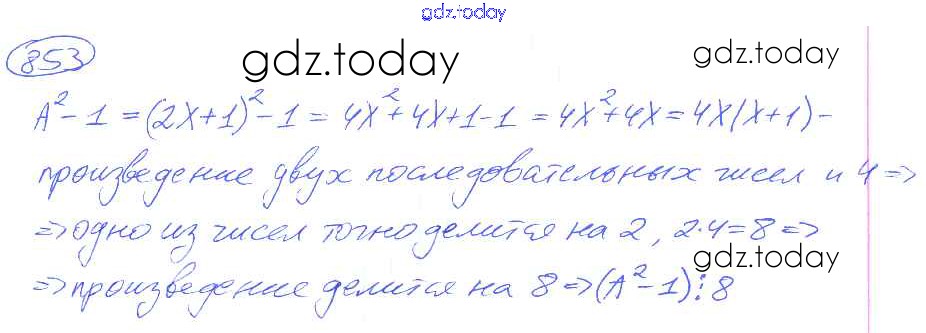 gdz.today
853
gdz.today gdz.today
A² - 1 = (2x+1)² - 1 = 4x² + 4x + 1 - 1 = 4x² + 4x = 4x(x+1) -
произведение двух последовательных чисел и 4 =>
=> одно из чисел точно делится на 2, 2·4=8 =>
gdz.today
=> произведение делится на 8 => (A² - 1)⋮8